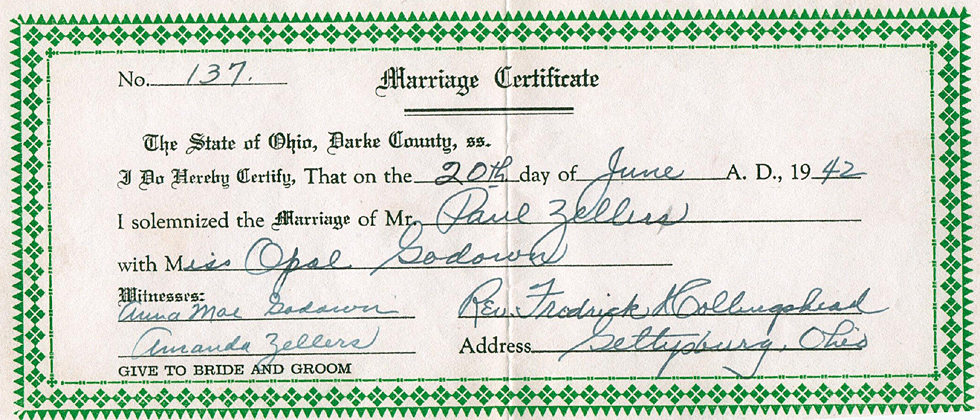 No. 137.
Marriage Certificate
The State of Ohio, Darke County, ss.
I Do Hereby Certify, That on the 20th day of June A. D., 1942
I solemnized the Marriage of Mr. Paul Zellers
with Miss Opal Godown
Witnesses:
Anna Mae Godown
Rev. Fredrick Hollingshead
Amanda Zellers
Address Gettysburg, Ohio
GIVE TO BRIDE AND GROOM